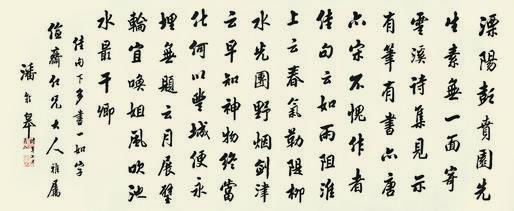 溧陽彭賁園先
生素無一面寄
雲溪詩集見示
有筆有書亦唐
亦宋不愧作者
佳句云如雨阻淮
上云春氣勒隄柳
水先團野烟劍津
云早知神物終當
化何以豐城便永
埋無題云月展璧
輪宜喚姐風吹池
水最干卿
佳句下多書一如字
儉齋仁兄大人雅屬
潘齡皋